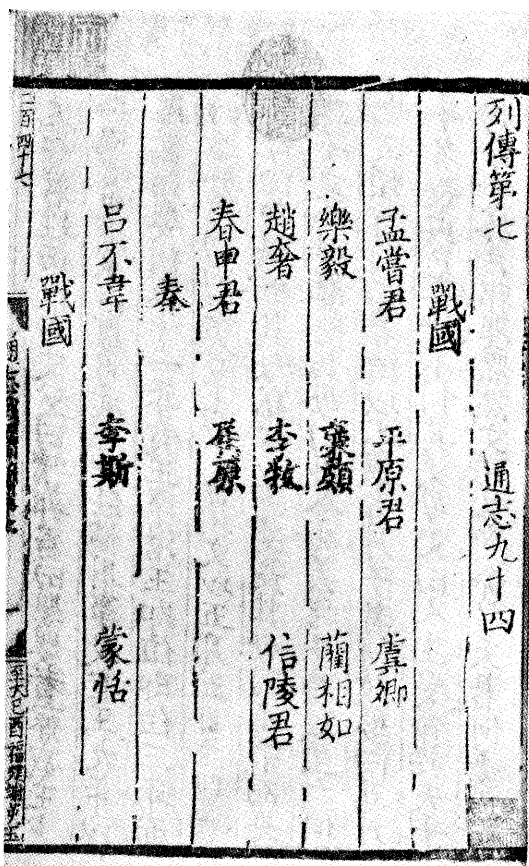 列傳第七 通志九十四
戰國
孟嘗君 平原君 虞卿
樂毅 廉頗 藺相如
趙奢 李牧 信陵君
春申君 屈原
秦
呂不韋 李斯 蒙恬
戰國